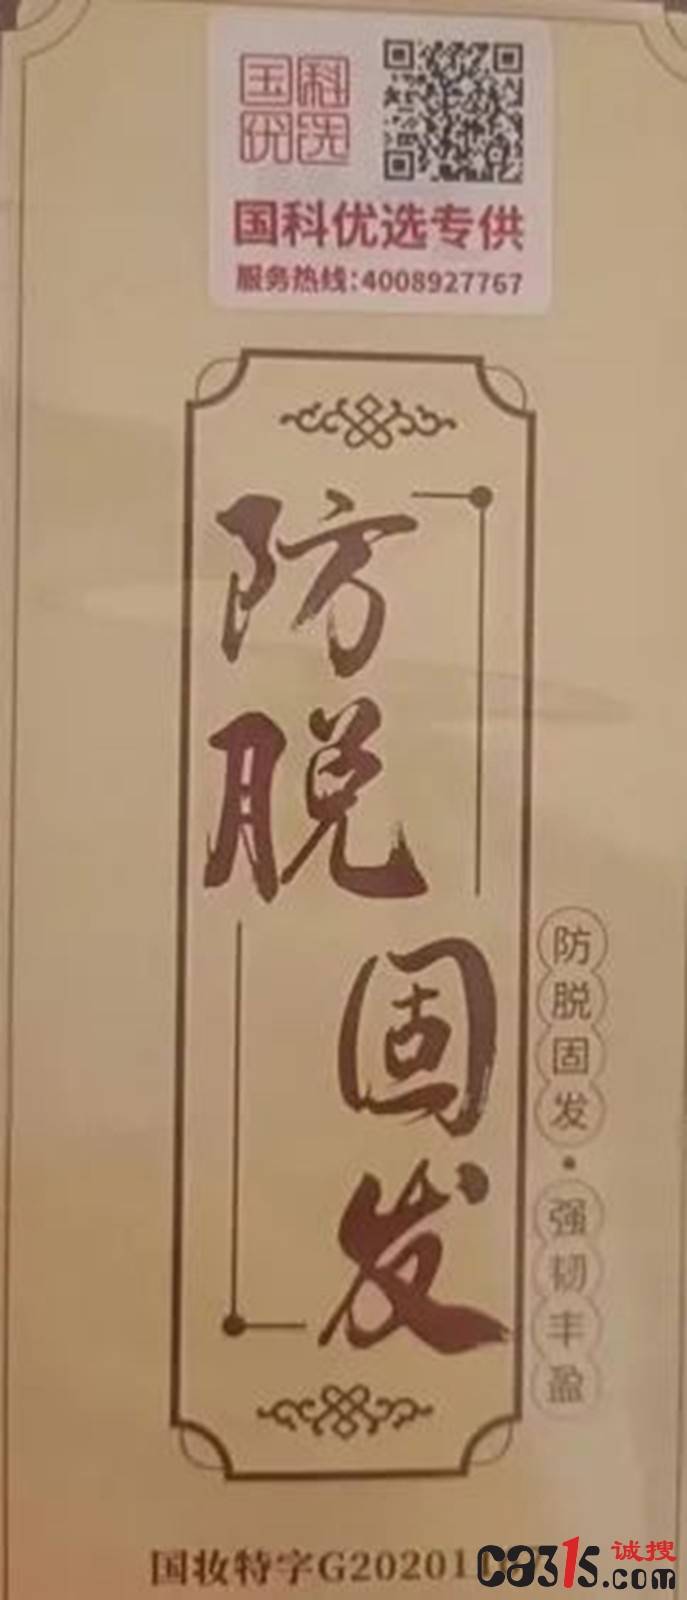 国科
优选
国科优选专供
服务热线:4008927767
防脱
固发
防脱固发·强韧丰盈
国妆特字G202011
ca315.com
诚搜